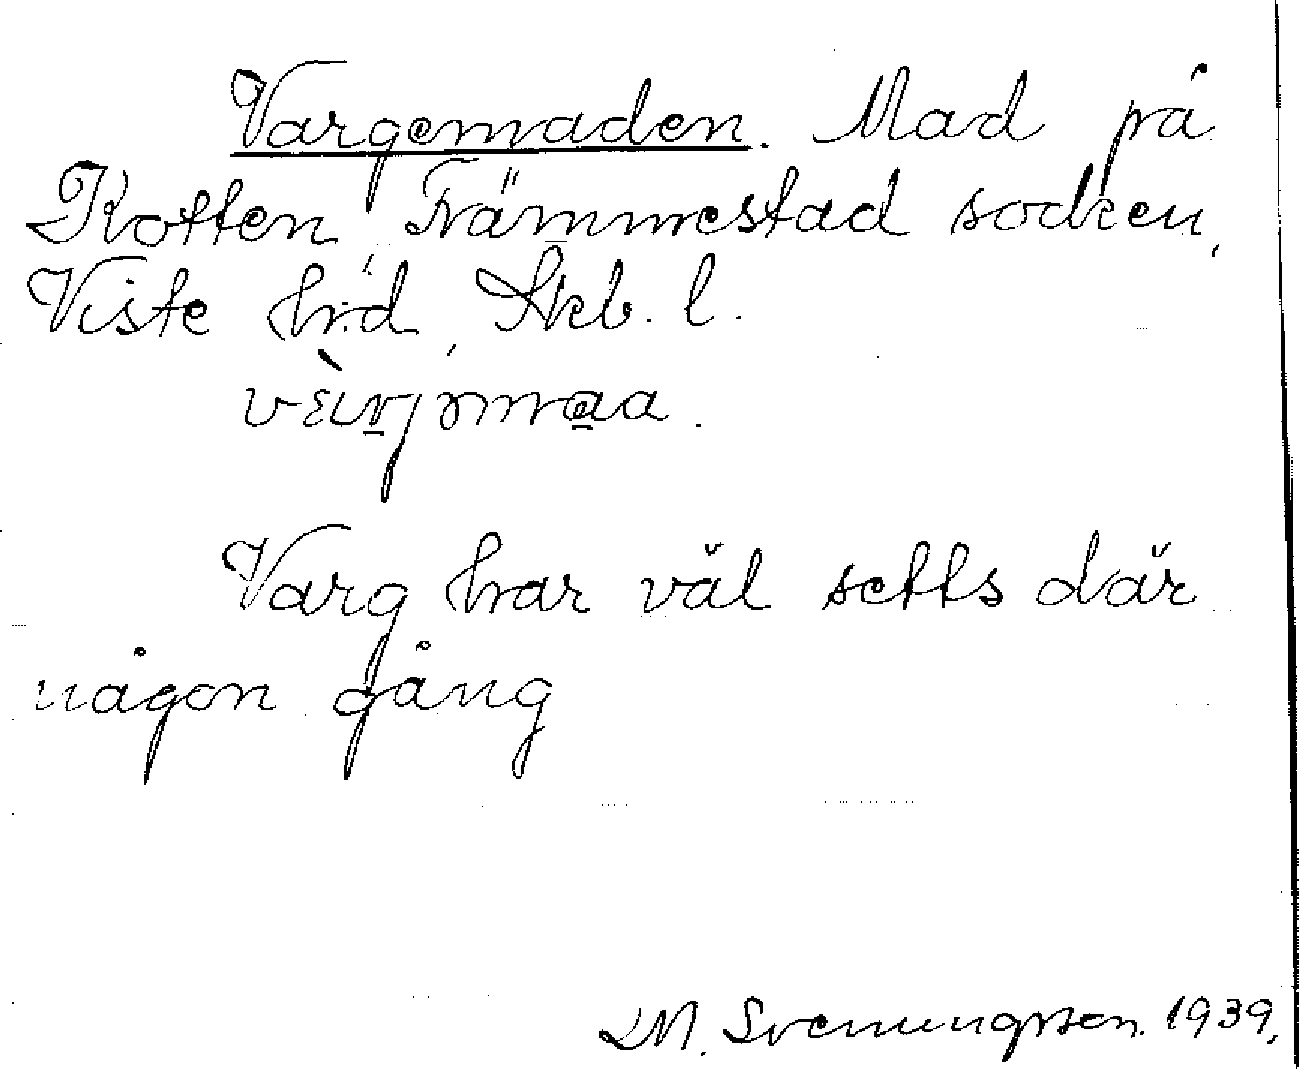 Vargemaden. Mad på
Kotten, Främmestad socken,
Viste h:d, Skb. l.
Varg har väl setts där
någon gång
M. Svenungsson. 1939.